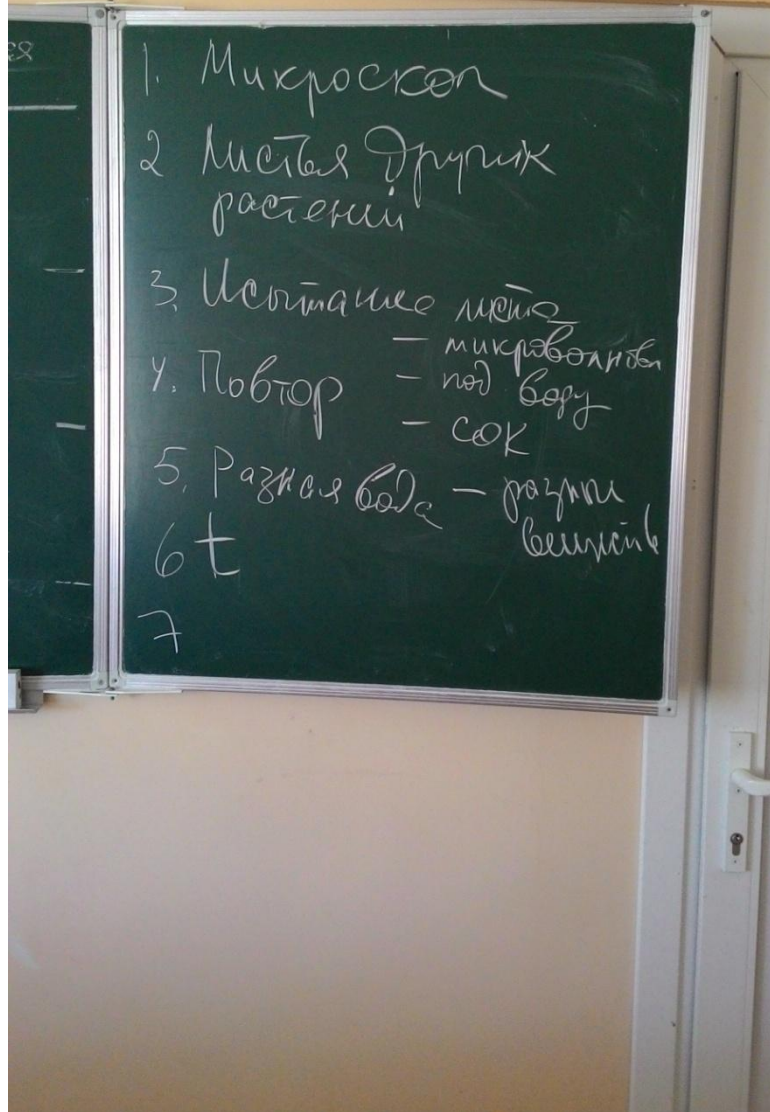 ся
1. Микроскоп
2 Листья других
растений
3. Исытание листа
— микроволновка
— под воду
4. Повтор
— сок
5. Разная вода — разные
веществ
6 t
7